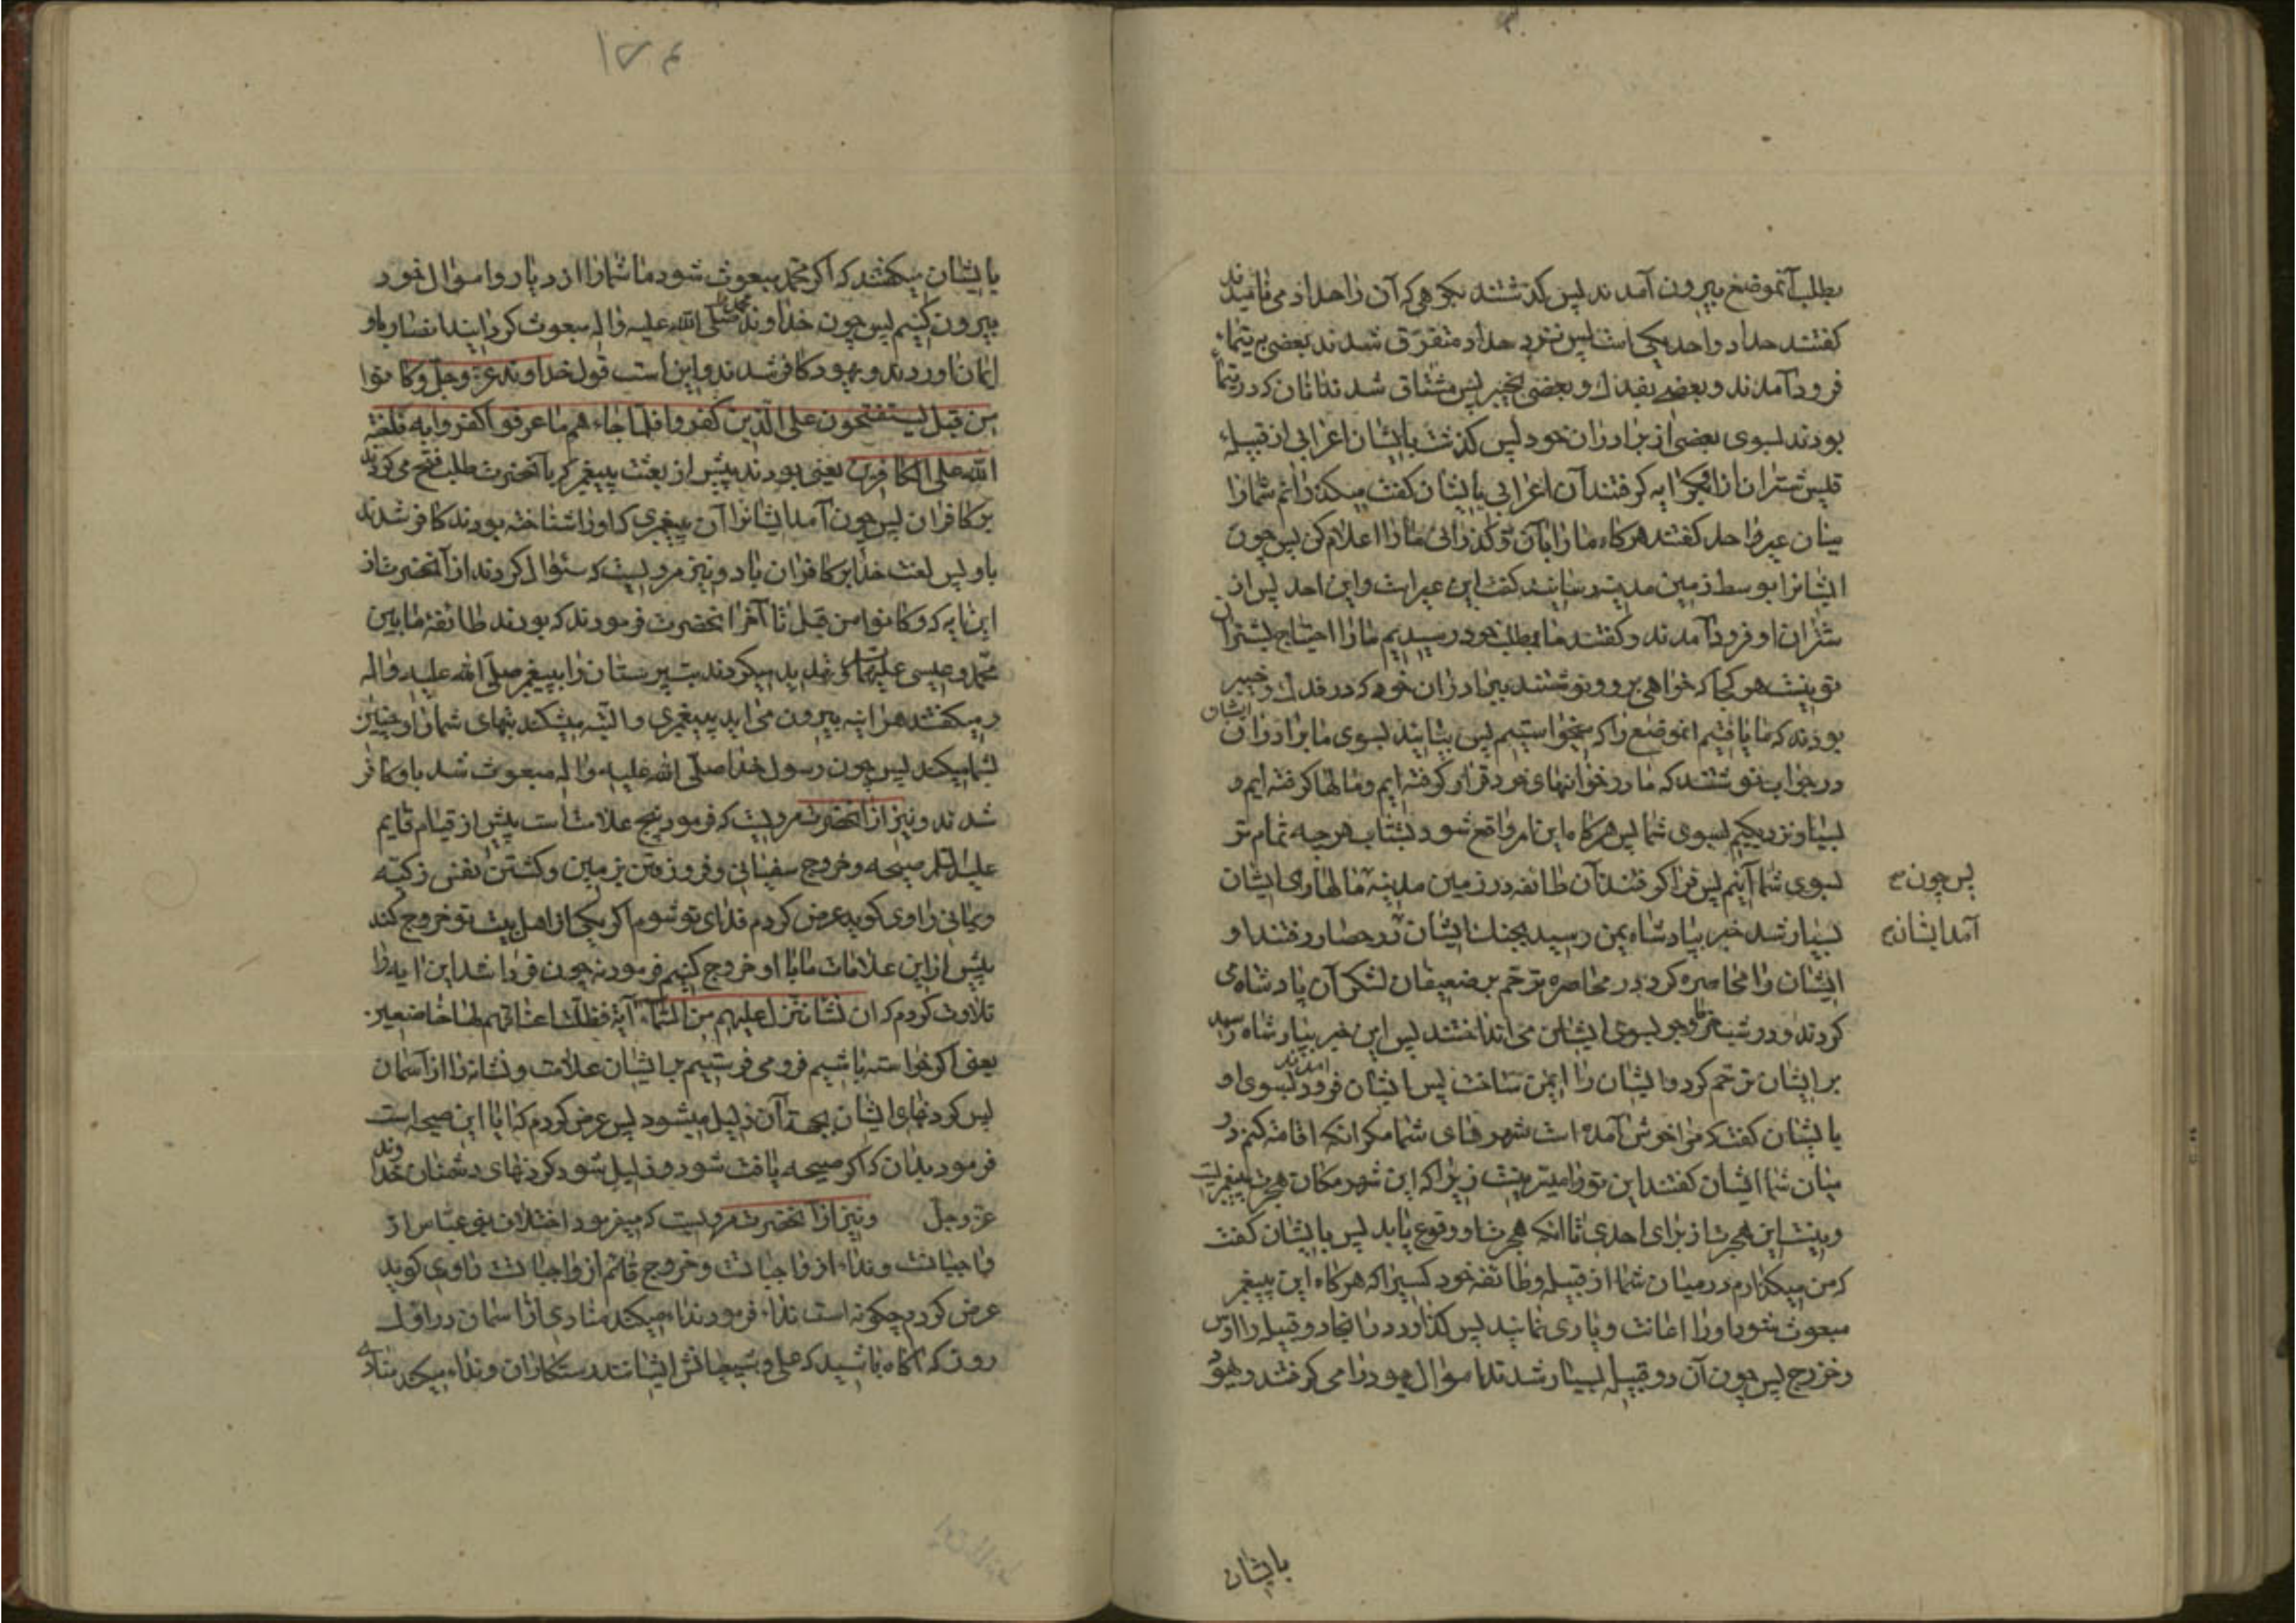 بطلب آنموضع بیرون آمدند پس کذشتند بکوهی که آن را حداد می نامیدند
کفتند حداد و احد یکی است پس نزد حداد متفرق شدند بعضی به تیماء
فرود آمدند و بعضی بفدک و بعضی بخیبر پس مشتاق شدند انان که در تیما
بودند بسوی بعضی از برادران خود پس کذشت بایشان اعرابی از قبیلهٔ
قیس شتران از او بکرایه کرفتند آن اعرابی بایشان کفت میکذرانم شمارا
میان عیر و احد کفتند هرکاه ما را بآن تو کذرانی ما را اعلام کن پس چون
ایشانرا بوسط زمین مدینه رسانید کفت این عیر است و این احد پس از
شتران او فرود آمدند و کفتند ما بمطلب خود رسیدیم ما را احتیاج بشتران
تو نیست هر کجا که خواهی برو و نوشتند ببرادران خود که در فدک و خیبر
بودند که ما یافتیم انموضع را که میخواستیم پس بیائید بسوی ما برادران ایشان
در جواب نوشتند که ما در خوانهای خود قرار کرفته ایم و مالها کرفته ایم و
بسیار نزدیکیم بسوی شما پس هرکاه این امر واقع شود بشتاب هرچه تمام تر
بسوی شما آئیم پس فرا کرفتند آن طائفه در زمین مدینه مالها
پس چون
بسیار شد خبر بپادشاه یمن رسید بجنک ایشان آمد ایشان در حصار رفتند و او
آمد ایشان
ایشان را محاصره کرد در محاصره ترحم بر ضعیفان لشکر آن پادشاه می
کردند و در شب خرما و جو بسوی ایشان می انداختند پس این خبر بپادشاه رسید
بر ایشان ترحم کرد و ایشان را ایمن ساخت پس ایشان فرود امدند بسوی او
بایشان کفت که مرا خوش آمده است شهرهای شما مکر انکه اقامه کنم در
میان شما ایشان کفتند این تو را میسر نیست زیرا که این شهر مکان هجرت پیغمبریست
و نیست این هجرت از برای احدی تا انکه هجرت او وقوع یابد پس بایشان کفت
که من میکذارم در میان شما از قبیله و طائفه خود کسیرا که هرکاه این پیغمبر
مبعوث شود او را اعانت و یاری نمایند پس کذارد در انجا دو قبیله را اوس
و خزرج پس چون آن دو قبیله بسیار شدند اموال یهود را می کرفتند و یهود
بایشان
۱۲۴
بایشان میکفتند که اکر محمد مبعوث شود ما شما را از دیار و اموال خود
بیرون کنیم پس چون خداوند محمد را صلی الله علیه واله مبعوث کردانید انصار باو
ایمان اوردند و یهود کافر شدند و این است قول خداوند عز وجل وکانوا
من قبل یستفتحون علی الذین کفروا فلما جاءهم ما عرفوا کفروا به فلعنة
الله علی الکافرین یعنی بودند پیش از بعثت پیغمبر که بآنحضرت طلب فتح می کردند
بر کافران پس چون آمد ایشانرا آن پیغمبری که او را شناخته بودند کافر شدند
باو پس لعنت خدا بر کافران باد و نیز مرویست که سئوال کردند از آنحضرت از
این ایه که وکانوا من قبل تا آخر انحضرت فرمودند که بودند طائفهٔ مابین
محمد و عیسی علیهما السلام که تهدید میکردند بت پرستان را به پیغمبر صلی الله علیه واله
و میکفتند هراینه بیرون می اید پیغمبری و البته میشکند بتهای شما را و چنین
بشما میکند پس چون رسول خدا صلی الله علیه واله مبعوث شد باو کافر
شدند و نیز از انحضرت مرویست که فرمود پنج علامت است پیش از قیام قایم
علیه السلام صیحه و خروج سفیانی و فرورفتن بزمین و کشتن نفس زکیه
و یمانی راوی کوید عرض کردم فدای تو شوم اکر یکی از اهل بیت تو خروج کند
پیش از این علامات ما با او خروج کنیم فرمود نه چون فردا شد این ایه را
تلاوت کردم که ان نشأ ننزل علیهم من السماء آیة فظلت اعناقهم لها خاضعین
یعنی اکر خواسته باشیم فرو می فرستیم بر ایشان علامت و نشانه را از آسمان
پس کردنهای ایشان بجهة آن ذلیل میشود پس عرض کردم که ایا این صیحه است
فرمود بدان که اکر صیحه یافت شود و ذلیل شود کردنهای دشمنان خداوند
عز وجل و نیز از آنحضرت مرویست که میفرمود اختلاف بنی عباس از
واجبات است و نداء از واجبات است و خروج قائم از واجبات است راوی کوید
عرض کردم چکونه است نداء فرمود نداء میکند منادی از اسمان در اول
روز که اکاه باشید که علی و شیعیانش ایشانند رستکاران و نداء میکند منادی